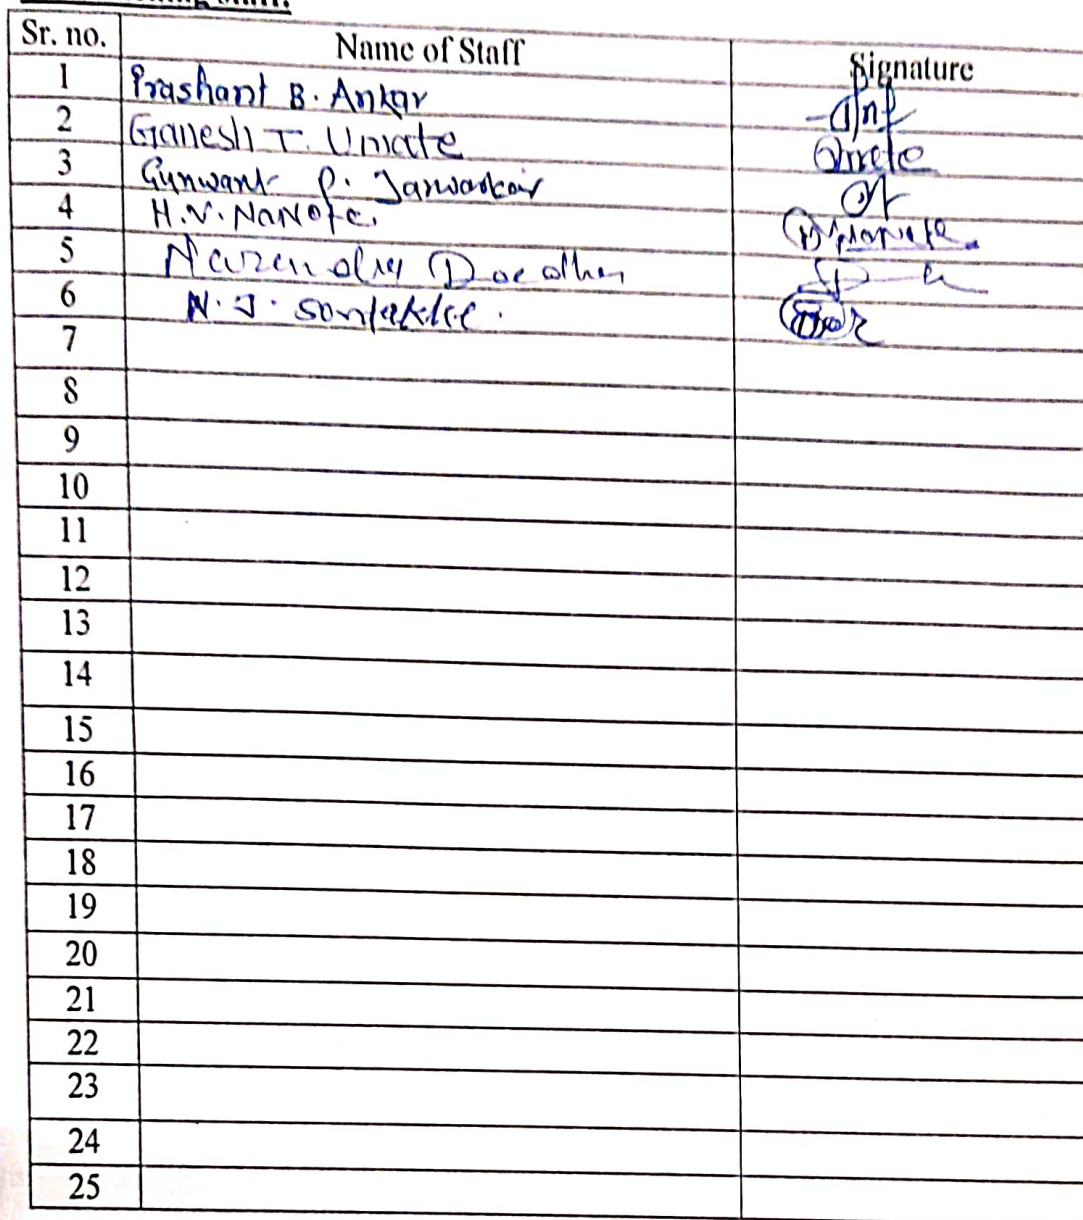 Sr. no. Name of Staff Signature
1 Prashant B. Ankar
2 Ganesh T. Umate Umate
3 Gunwant P.
4 H.N. Nanote. Nanote.
5 Narendra
6 N. J. Sontakke.
7
8
9
10
11
12
13
14
15
16
17
18
19
20
21
22
23
24
25